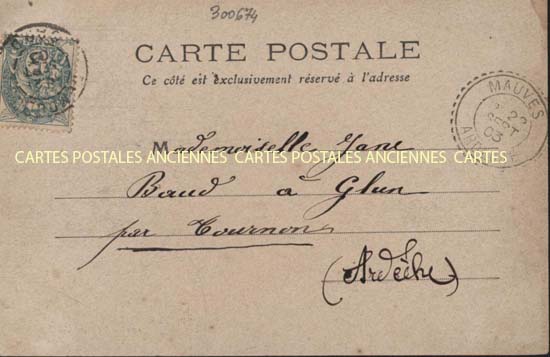 300674
CARTE POSTALE
Ce côté est exclusivement réservé à l'adresse
MAUVES
Mademoiselle Jane
CARTES POSTALES ANCIENNES CARTES POSTALES ANCIENNES CARTES
Baud à Glun
par Tournon
(Ardèche)